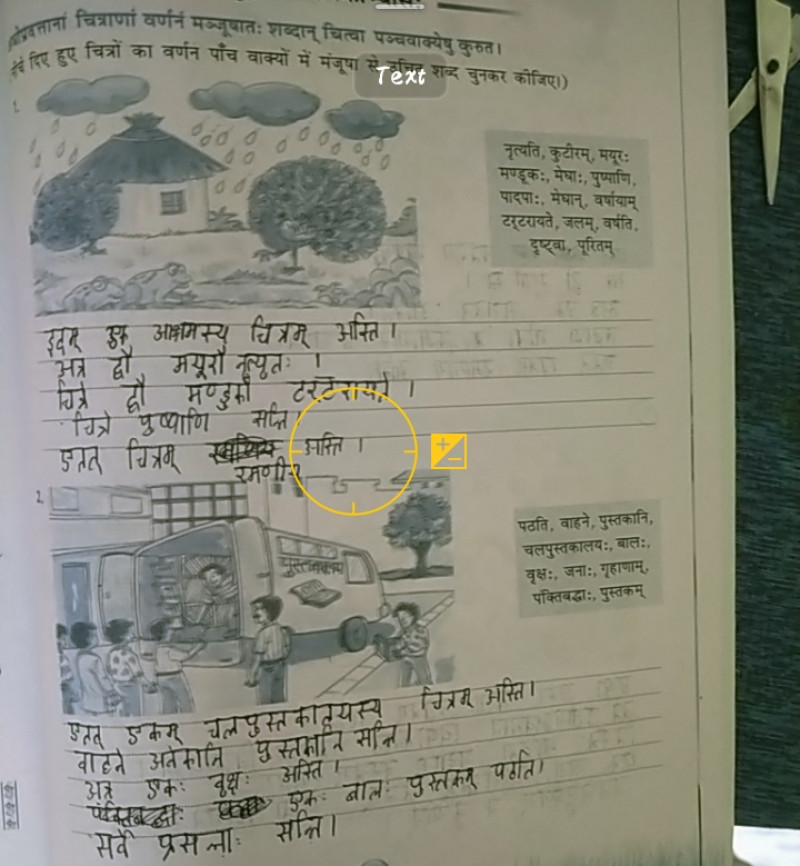 चित्राणां वर्णनं मञ्जूषातः शब्दान् चित्वा पञ्चवाक्येषु कुरुत।
दिए हुए चित्रों का वर्णन पाँच वाक्यों में मंजूषा से उचित शब्द चुनकर कीजिए।)
Text
1.
नृत्यति, कुटीरम्, मयूरः
मण्डूकः, मेघाः, पुष्पाणि,
पादपाः, मेघान्, वर्षायाम्
टर्टरायते, जलम्, वर्षति,
दृष्ट्वा, पूरितम्
इदम् एक आश्रमस्य चित्रम् अस्ति।
अत्र द्वौ मयूरौ नृत्युतः ।
चित्रे द्वौ मण्डुकौ ।
चित्रे पुष्पाणि सन्ति
एतत् चित्रम् रमणीय अस्ति ।
2.
पुस्तकालय
पठति, वाहने, पुस्तकानि,
चलपुस्तकालयः, बालः,
वृक्षः, जनाः, गृहाणाम्,
पंक्तिबद्धाः, पुस्तकम्
एतत् एकम् चलपुस्तकालयस्य चित्रम् अस्ति।
वाहने अनेकानि पुस्तकानि सन्ति।
अत्र एकः वृक्षः अस्ति।
एकः बालः पुस्तकम् पठति।
सर्वे प्रसन्नाः सन्ति।